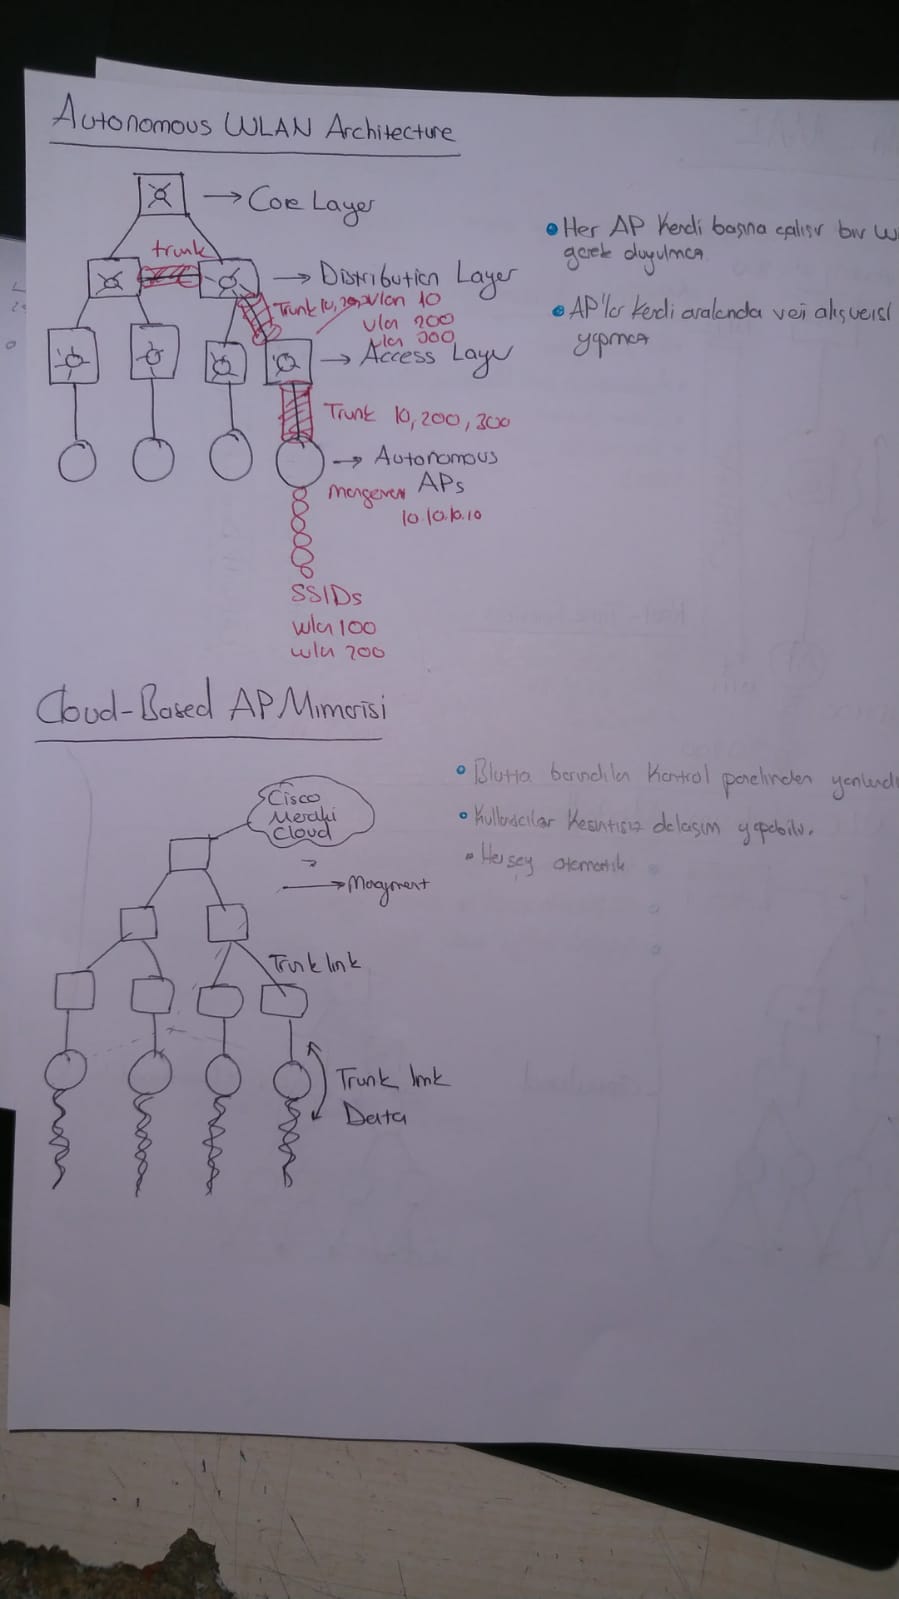 Autonomous WLAN Architecture
Core Layer
trunk
Distribution Layer
Trunk 10, 200, Vlan 10
vlan 200
vlan 300
Access Layer
Trunk 10, 200, 300
Autonomous
APs
10.10.10.10
SSIDs
wlan 100
wlan 200
• Her AP Kendi başına çalışır bir W
gerek duyulmaz
• AP'ler kendi aralarında veri alışverişi
yapmaz
Cloud-Based AP Mimarisi
Cisco
Meraki
Cloud
Trunk link
Trunk link
Data
• Bulutta barındırılan Kontrol panelinden
• Kullanıcılar Kesintisiz dolaşım yapabilir.
• Herşey otomatik